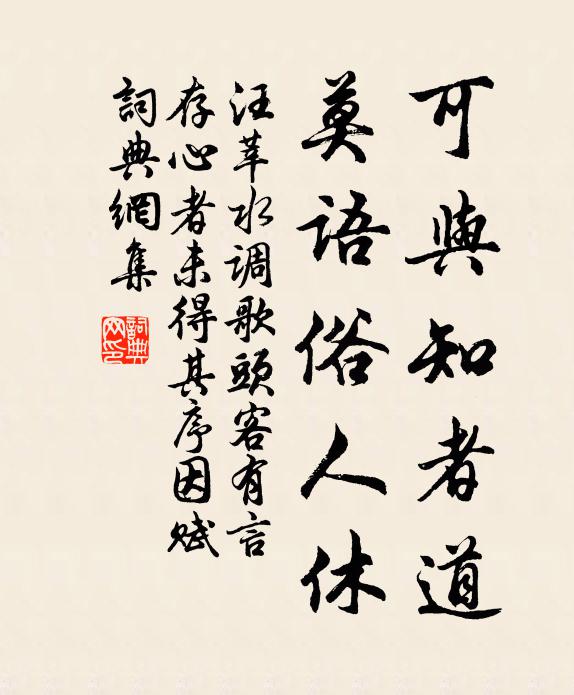 可與知者道
莫語俗人休
汪莘水调歌頭客有言
存心者未得其序因赋
詞典網集
詞典
网印